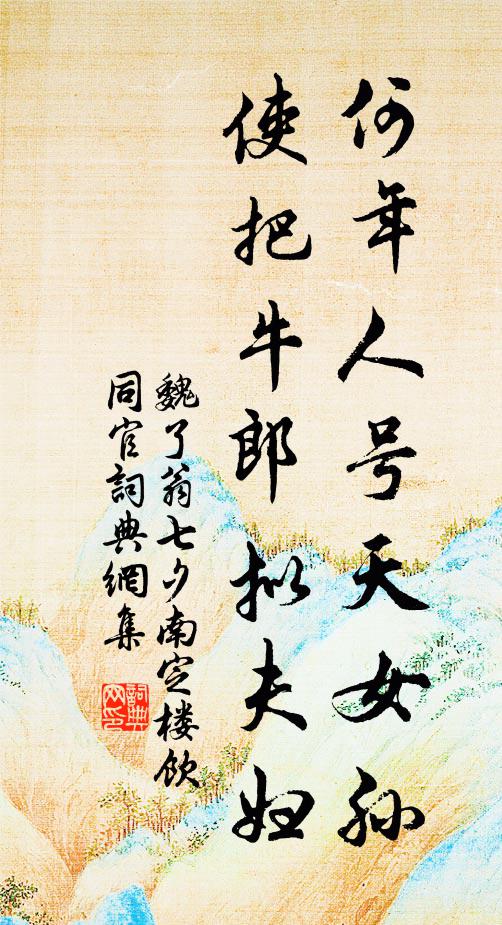 何年人号天女孙
使把牛郎拟夫妇
魏了翁七夕南定楼饮
同官詞典網集
詞典
网印